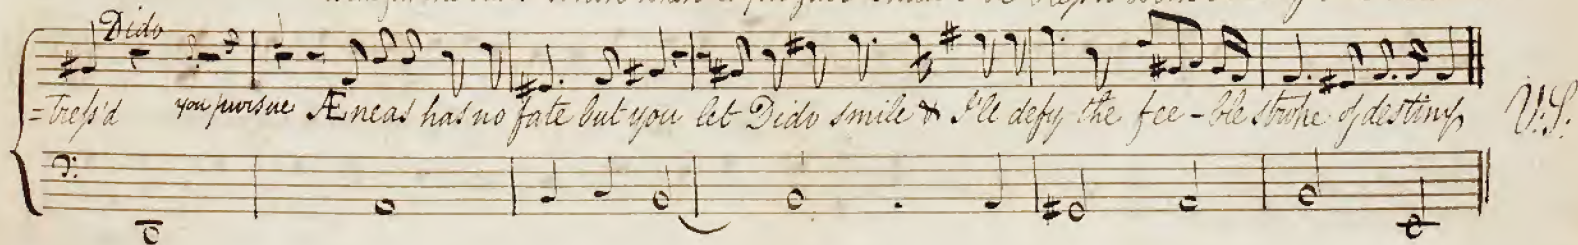 Dido
=tress'd you pursue Æneas has no fate but you let Dido smile & I'll defy the fee-ble stroke of destiny V.S.